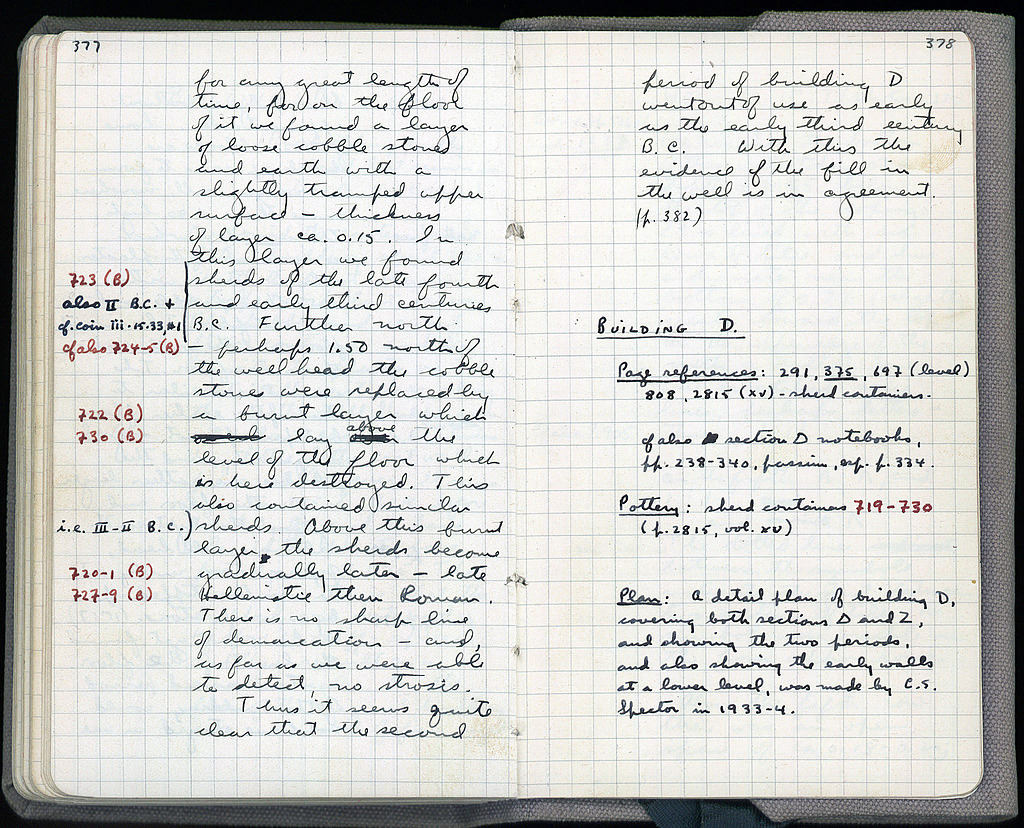 377
for any great length of
time, for on the floor
of it we found a layer
of loose cobble stones
and earth with a
slightly tramped upper
surface – thickness
of layer ca. 0.15. In
this layer we found
723 (B)
sherds of the late fourth
also II B.C. +
and early third centuries
cf. coin iii·15·33, #1
B.C. Further north
cf also 724-5 (B)
– perhaps 1.50 north of
the well head the cobble
stones were replaced by
722 (B)
a burnt layer which
730 (B)
lay above the
level of the floor which
is here destroyed. This
also contained similar
i.e. III – II B.C.)
sherds. Above this burnt
layer, the sherds become
720-1 (B)
gradually later – late
727-9 (B)
Hellenistic then Roman.
There is no sharp line
of demarcation – and,
as far as we were able
to detect, no strosis.
Thus it seems quite
clear that the second
378
period of building D
went out of use as early
as the early third century
B.C. With this the
evidence of the fill in
the well is in agreement.
(p. 382)
BUILDING D.
Page references: 291, 375, 697 (level)
808, 2815 (XV) – sherd containers.
cf also section D notebooks,
pp. 238-340, passim, esp. p. 334.
Pottery: sherd containers 719-730
(p. 2815, vol. XV)
Plan: A detail plan of building D,
covering both sections D and Z,
and showing the two periods,
and also showing the early walls
at a lower level, was made by C.S.
Spector in 1933-4.